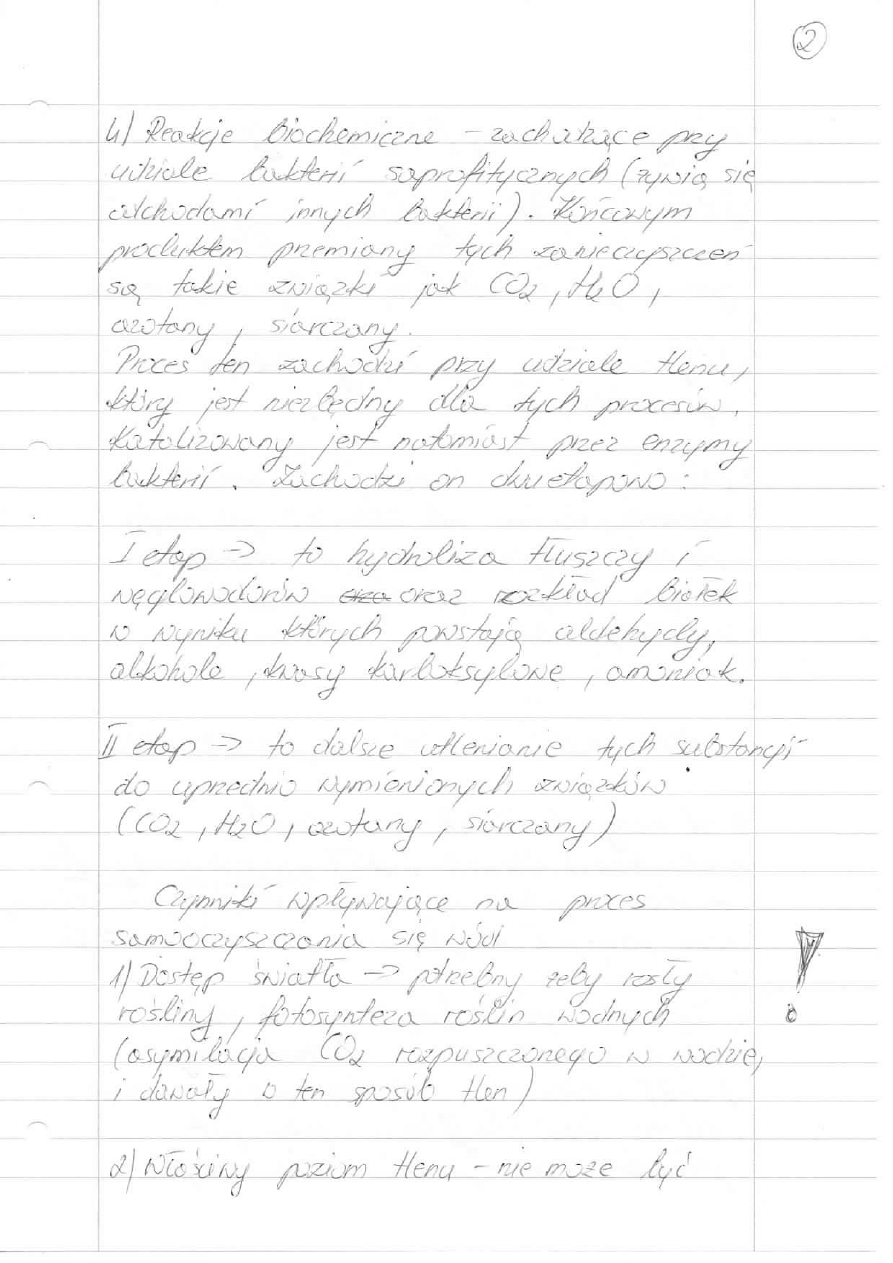 2
4) Reakcje biochemiczne - zachodzące przy
udziale bakterii saprofitycznych (żywią się
odchodami innych bakterii). Końcowym
produktem przemiany tych zanieczyszczeń
są takie związki jak CO2, H2O,
azotany, siarczany.
Proces ten zachodzi przy udziale tlenu,
który jest niezbędny dla tych procesów.
Katalizowany jest natomiast przez enzymy
bakterii. Zachodzi on dwuetapowo:
I etap -> to hydroliza tłuszczy i
węglowodorów oraz rozkład białek
w wyniku których powstają aldehydy,
alkohole, kwasy karboksylowe, amoniak.
II etap -> to dalsze utlenianie tych substancji
do uprzednio wymienionych związków
(CO2, H2O, azotany, siarczany)
Czynniki wpływające na proces
samooczyszczania się wód !
1) Dostęp światła -> potrzebny żeby rosły
rośliny, fotosynteza roślin wodnych
(asymilacja CO2 rozpuszczonego w wodzie,
i dawały w ten sposób tlen)
2) Właściwy poziom tlenu - nie może być